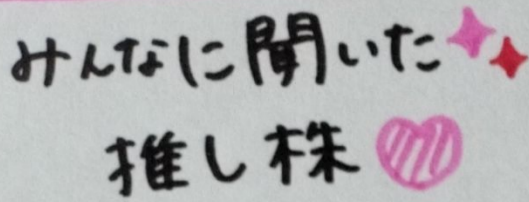 みんなに聞いた
推し株